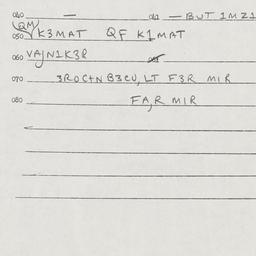 040 — 041 — BUT 1MZ1
QM
050 K3MAT QF K1MAT
060 VAJN1K3R
070 3ROC+N B3CU, LT F3R M1R
080 FA,R M1R